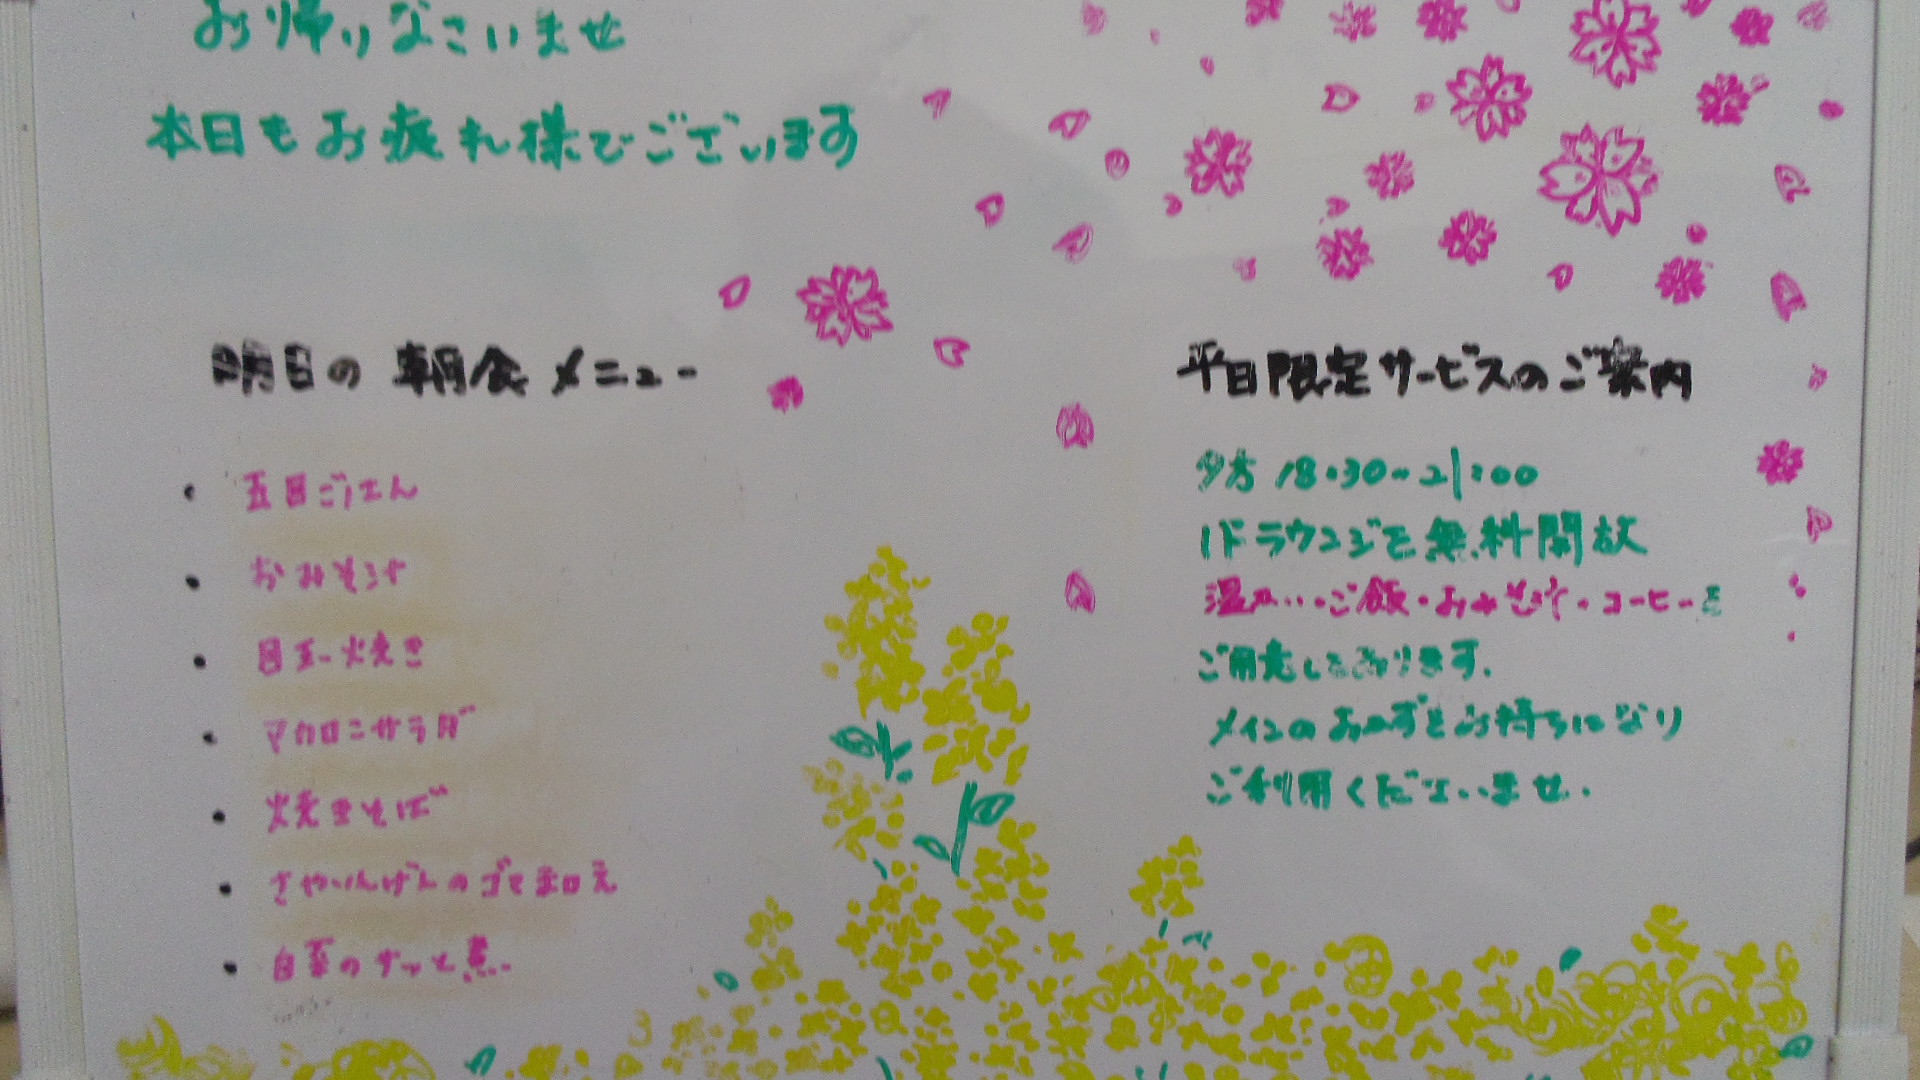 お帰りなさいませ
本日もお疲れ様でございます
明日の朝食メニュー
・五目ごはん
・おみそ汁
・目玉焼き
・マカロニサラダ
・焼きそば
・さやいんげんのゴマ和え
・白菜のサッと煮
平日限定サービスのご案内
夕方 18:30~21:00
1Fラウンジを無料開放
温かい・ご飯・おみそ汁・コーヒーを
ご用意しております。
メインのおかずをお持ちになり
ご利用くださいませ。